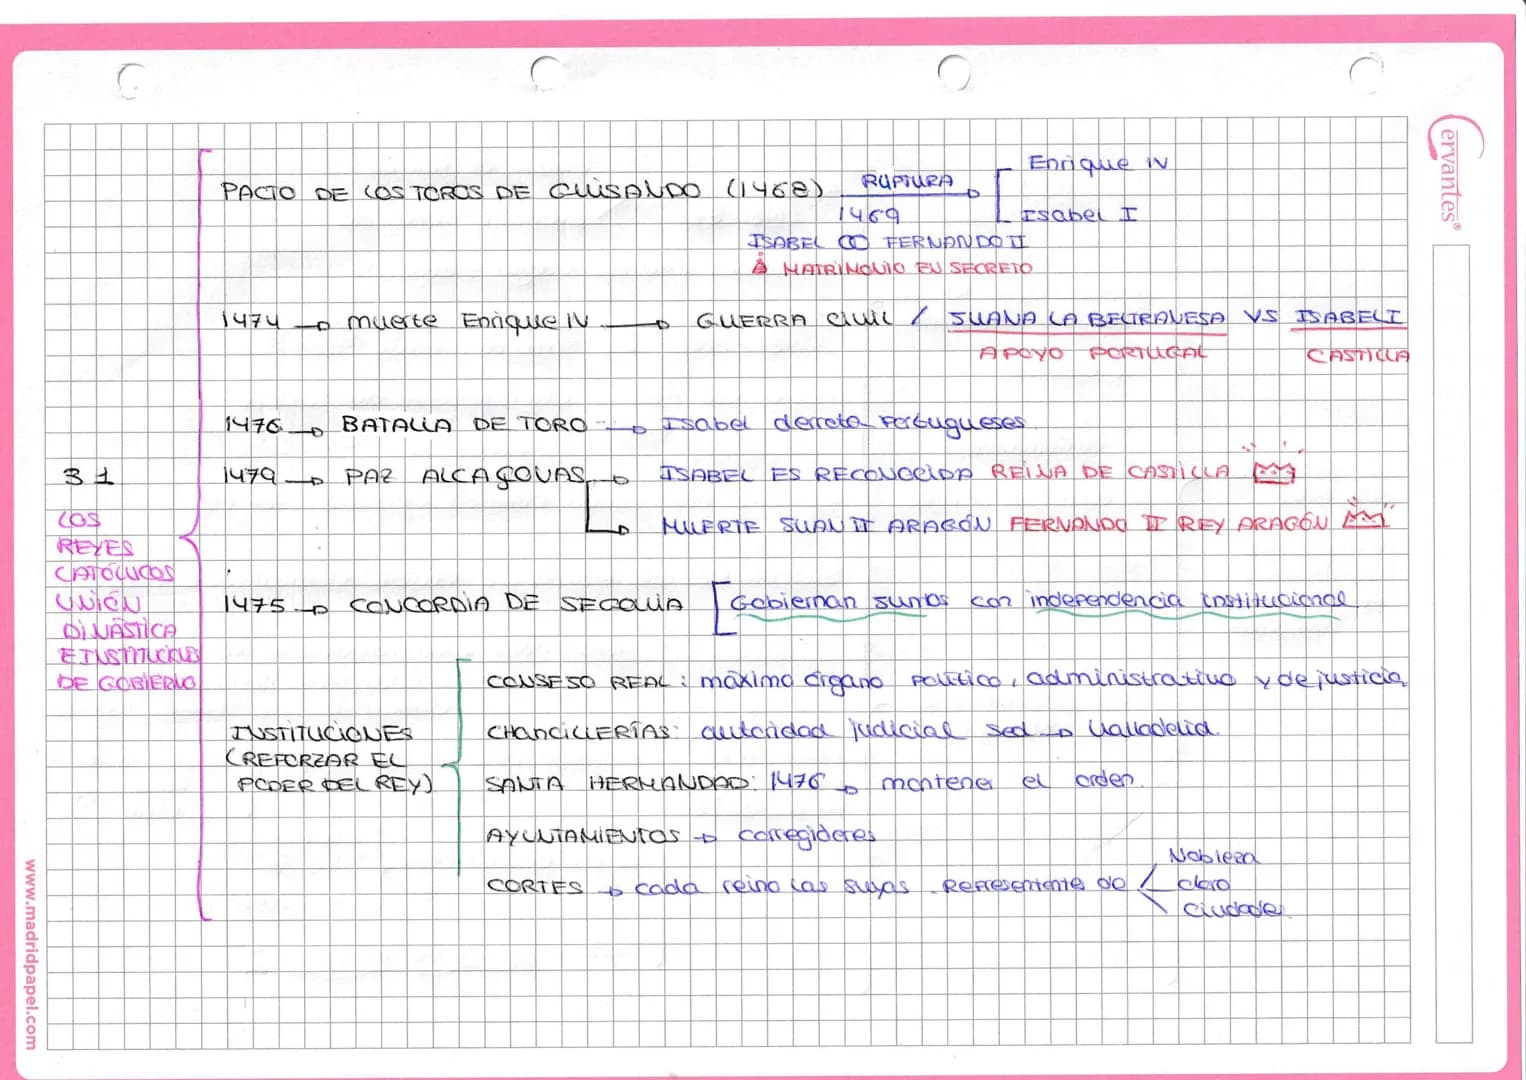 Cervantes®
PACTO DE LOS TOROS DE GUISANDO (1468) RUPTURA Enrique IV
1469 Isabel I
ISABEL ∞ FERNANDO II
MATRIMONIO EN SECRETO
1474 → muerte Enrique IV → GUERRA civil / JUANA LA BELTRANESA VS ISABEL I
APOYO PORTUGAL CASTILLA
1476 → BATALLA DE TORO → Isabel derrota Portugueses
3 1
1479 → PAZ ALCAÇOVAS → ISABEL ES RECONOCIDA REINA DE CASTILLA
→ MUERTE JUAN II ARAGÓN FERNANDO II REY ARAGÓN
LOS
REYES
CATÓLICOS
UNIÓN
DINÁSTICA
E INSTITUCIONES
DE GOBIERNO
1475 → CONCORDIA DE SEGOVIA [Gobiernan juntos con independencia institucional
INSTITUCIONES
(REFORZAR EL
PODER DEL REY)
CONSEJO REAL: máximo órgano político, administrativo y de justicia
CHANCILLERÍAS: autoridad judicial sed → Valladolid.
SANTA HERMANDAD: 1476 → mantener el orden.
AYUNTAMIENTOS → corregidores
CORTES → cada reino las suyas Representante de
Nobleza
clero
ciudades
www.madridpapel.com